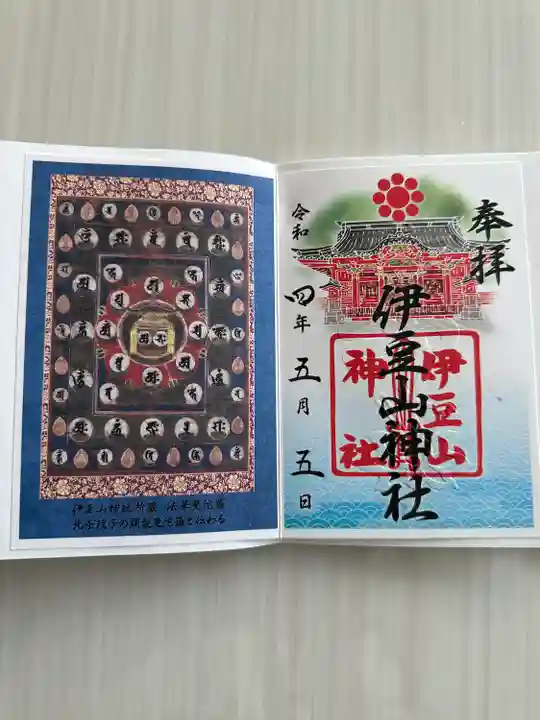 奉拝
伊豆山神社
伊豆山
神社
令和四年五月五日
伊豆山神社所蔵 法華曼荼羅
北条政子の頭髪曼荼羅と伝わる